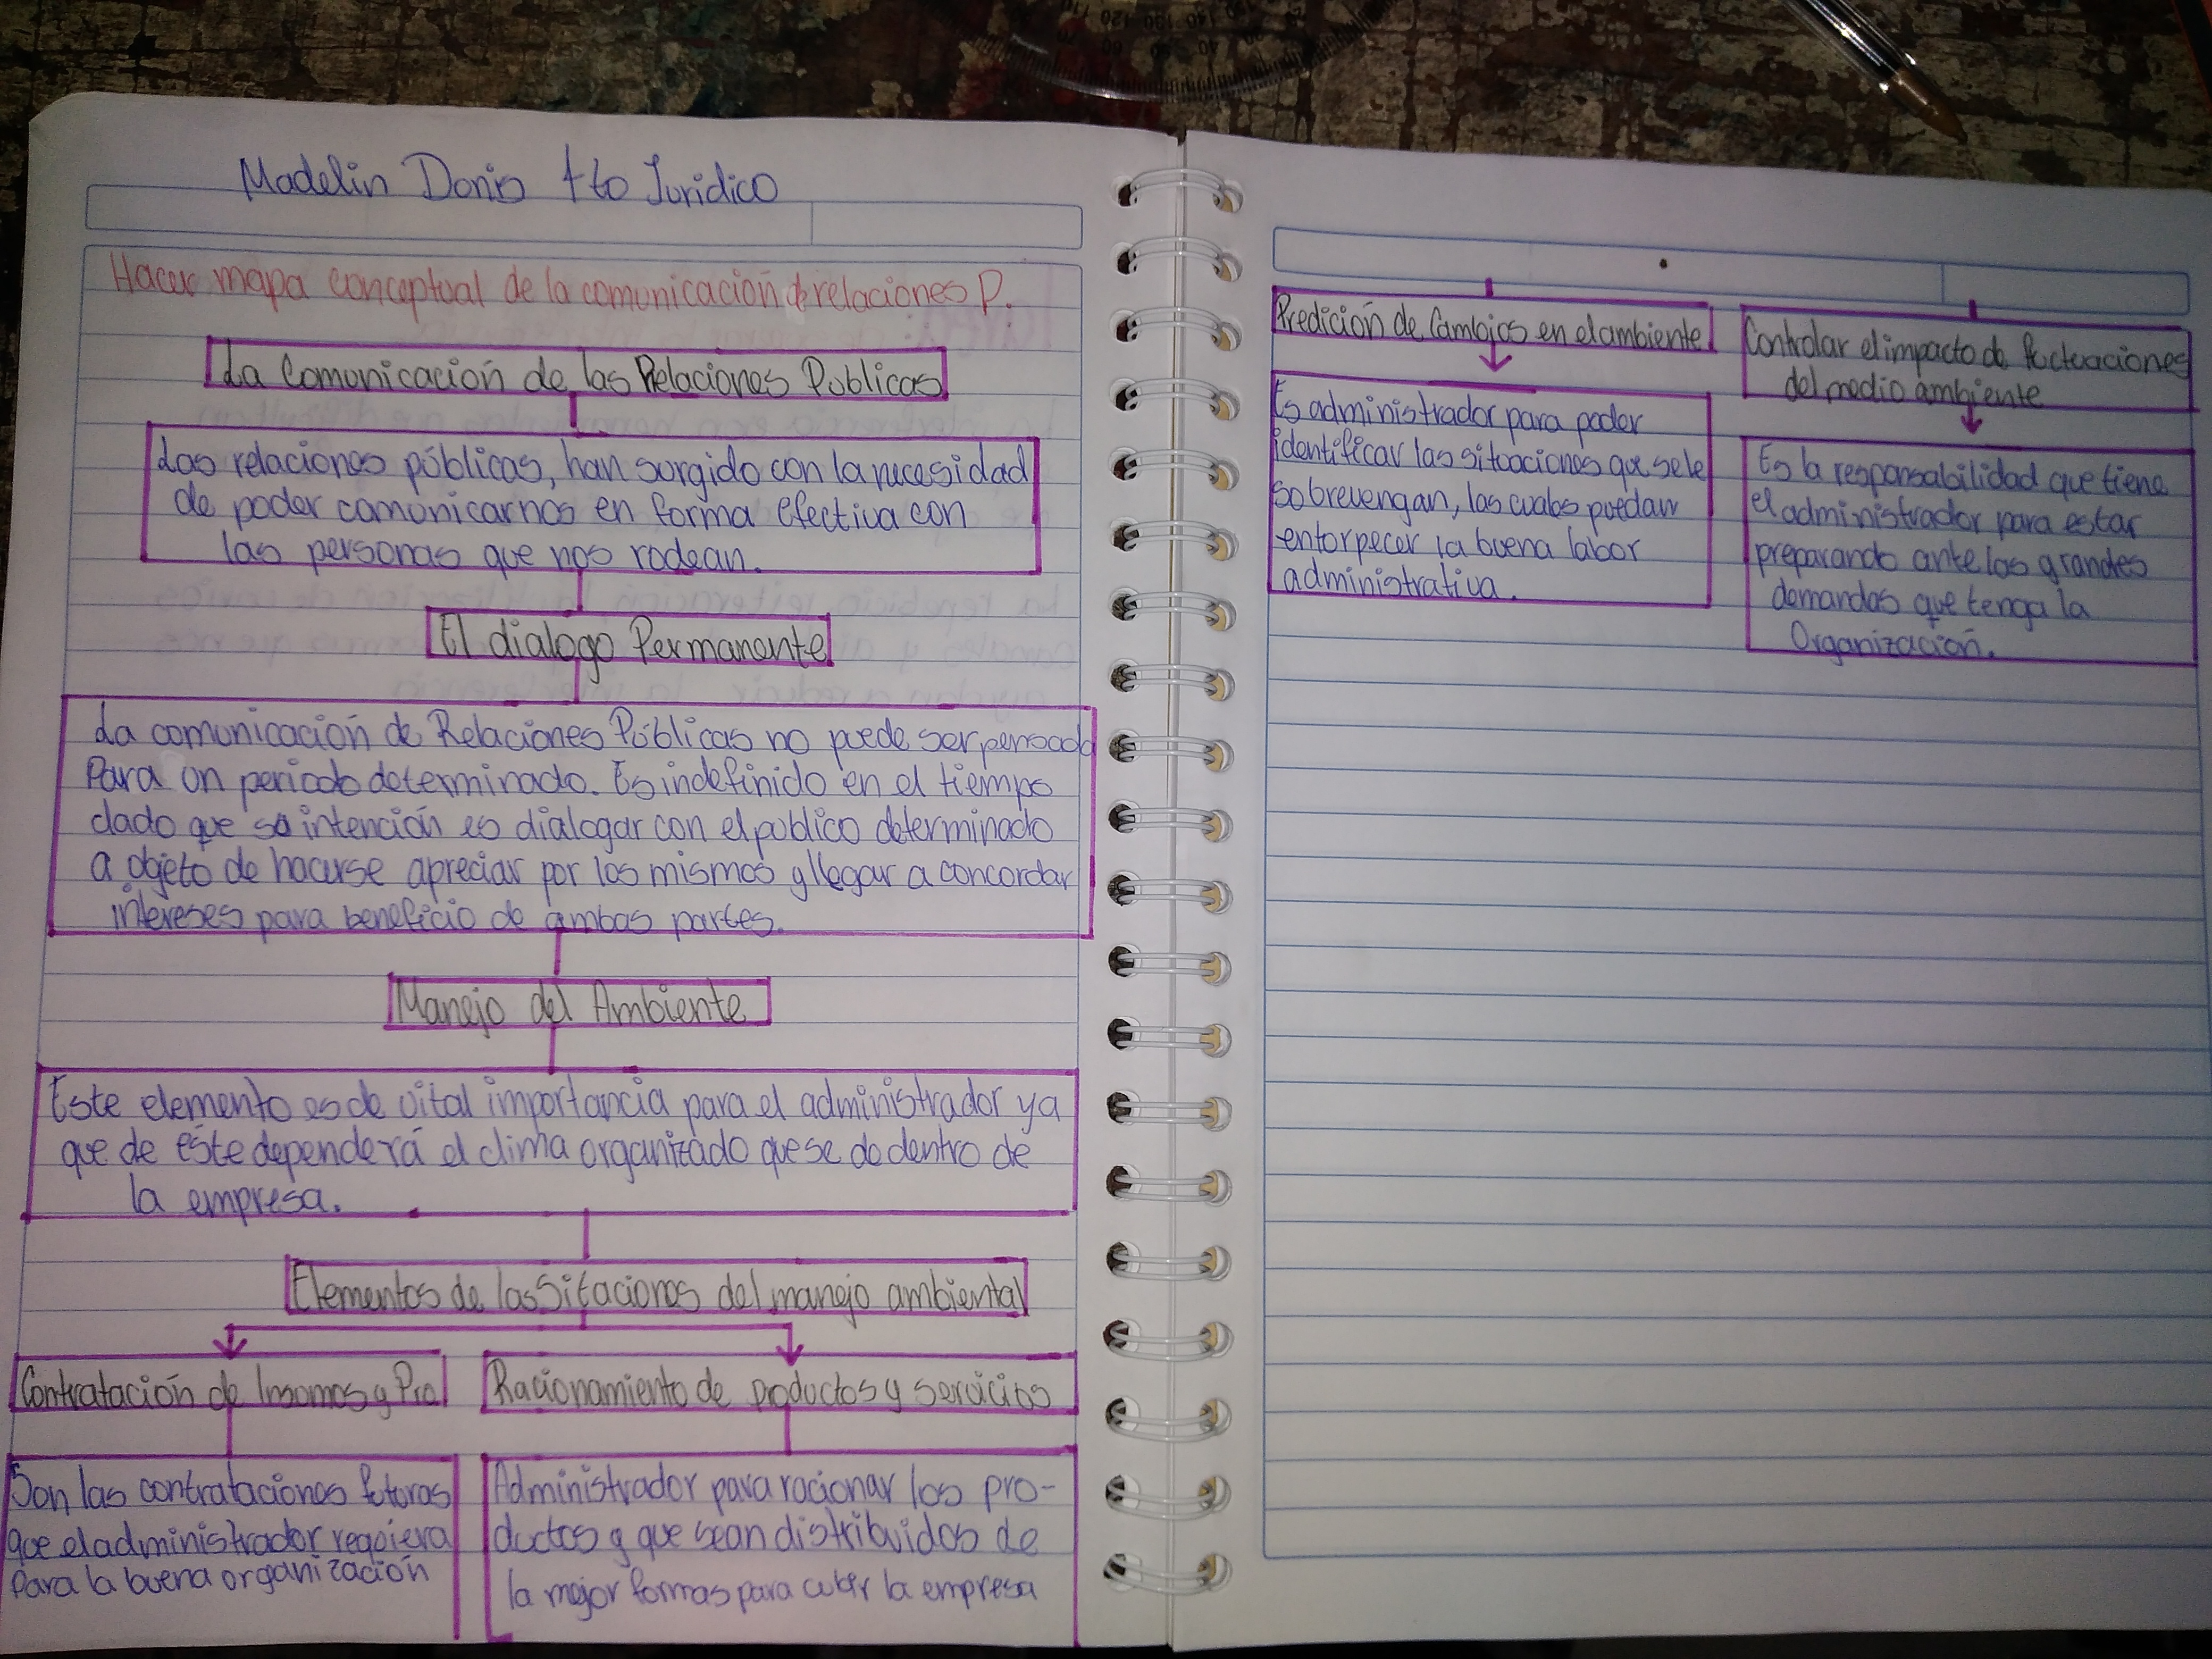 Madelin Donis 4to Juridico
Hacer mapa conceptual de la comunicación de relaciones P.
La Comunicación de las Relaciones Publicas
Las relaciones públicas, han surgido con la necesidad
de poder comunicarnos en forma efectiva con
las personas que nos rodean.
El dialogo Permanente
La comunicación de Relaciones Públicas no puede ser pensada
Para un periodo determinado. Es indefinido en el tiempo
dado que su intención es dialogar con el publico determinado
a objeto de hacerse apreciar por los mismos y llegar a concordar
intereses para beneficio de ambas partes.
Manejo del Ambiente
Este elemento es de vital importancia para el administrador ya
que de éste dependerá el clima organizado que se da dentro de
la empresa.
Elementos de las Sitaciones del manejo ambiental
Contratación de Insumos y Pro
Racionamiento de productos y servicios
Son las contrataciones futuras
que el administrador requiera
para la buena organización
Administrador para racionar los pro-
ductos y que sean distribuidos de
la mejor formas para cubrir la empresa
Predición de Cambios en el ambiente
Es administrador para poder
identificar las situaciones que se le
sobrevengan, las cuales puedan
entorpecer la buena labor
administrativa.
Controlar el impacto de fluctuaciones
del medio ambiente
Es la responsabilidad que tiene
el administrador para estar
preparando ante las grandes
demandas que tenga la
Organización.